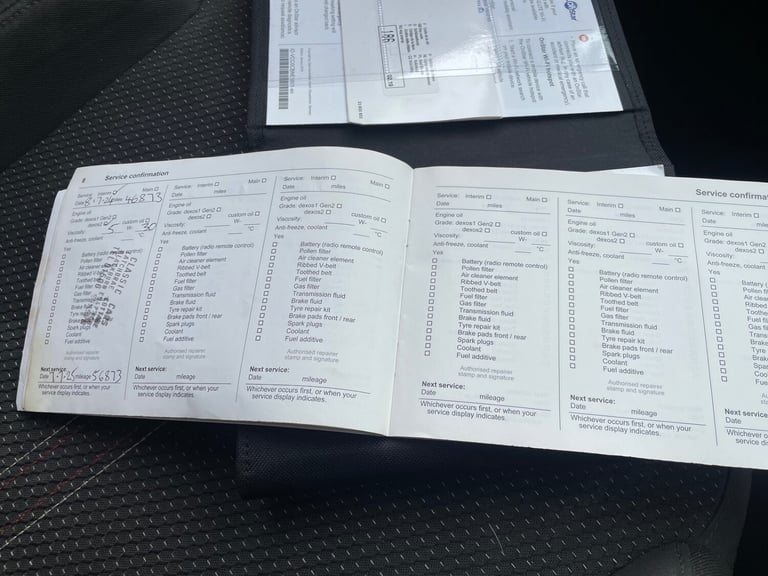 8
Service confirmation
Service: Interim Main
Date 8-7-24 miles 46873
Engine oil
Grade: dexos1 Gen2
dexos2 custom oil
Viscosity: 5 W- 30
Anti-freeze, coolant °C
Yes
Battery (radio remote control)
Pollen filter
Air cleaner element
Ribbed V-belt
Toothed belt
Fuel filter
Gas filter
Transmission fluid
Brake fluid
Tyre repair kit
Brake pads front / rear
Spark plugs
Coolant
Fuel additive
CLASSIC CARS
Authorised repairer
stamp and signature
Next service:
Date 7-7-25 mileage 56873
Whichever occurs first, or when your
service display indicates.
Service: Interim Main
Date miles
Engine oil
Grade: dexos1 Gen2
dexos2 custom oil
Viscosity: W-
Anti-freeze, coolant °C
Yes
Battery (radio remote control)
Pollen filter
Air cleaner element
Ribbed V-belt
Toothed belt
Fuel filter
Gas filter
Transmission fluid
Brake fluid
Tyre repair kit
Brake pads front / rear
Spark plugs
Coolant
Fuel additive
Authorised repairer
stamp and signature
Next service:
Date mileage
Whichever occurs first, or when your
service display indicates.
Service: Interim Main
Date miles
Engine oil
Grade: dexos1 Gen2
dexos2 custom oil
Viscosity: W-
Anti-freeze, coolant °C
Yes
Battery (radio remote control)
Pollen filter
Air cleaner element
Ribbed V-belt
Toothed belt
Fuel filter
Gas filter
Transmission fluid
Brake fluid
Tyre repair kit
Brake pads front / rear
Spark plugs
Coolant
Fuel additive
Authorised repairer
stamp and signature
Next service:
Date mileage
Whichever occurs first, or when your
service display indicates.
Service: Interim Main
Date miles
Engine oil
Grade: dexos1 Gen2
dexos2 custom oil
Viscosity: W-
Anti-freeze, coolant °C
Yes
Battery (radio remote control)
Pollen filter
Air cleaner element
Ribbed V-belt
Toothed belt
Fuel filter
Gas filter
Transmission fluid
Brake fluid
Tyre repair kit
Brake pads front / rear
Spark plugs
Coolant
Fuel additive
Authorised repairer
stamp and signature
Next service:
Date mileage
Whichever occurs first, or when your
service display indicates.
Service: Interim Main
Date miles
Engine oil
Grade: dexos1 Gen2
dexos2 custom oil
Viscosity: W-
Anti-freeze, coolant °C
Yes
Battery (radio remote control)
Pollen filter
Air cleaner element
Ribbed V-belt
Toothed belt
Fuel filter
Gas filter
Transmission fluid
Brake fluid
Tyre repair kit
Brake pads front / rear
Spark plugs
Coolant
Fuel additive
Authorised repairer
stamp and signature
Next service:
Date mileage
Whichever occurs first, or when your
service display indicates.
Service confirma
Service: Interim
Date
Engine oil
Grade: dexos1 Gen2
dexos2
Viscosity:
Anti-freeze, coolant
Yes
Battery (
Pollen fi
Air clea
Ribbed
Toothe
Fuel fil
Gas fil
Transm
Brake
Tyre
Brake
Spa
Coo
Fue
Next service:
Date
Whichever o
service di
OnStar
OnStar Wi-Fi Hotspot